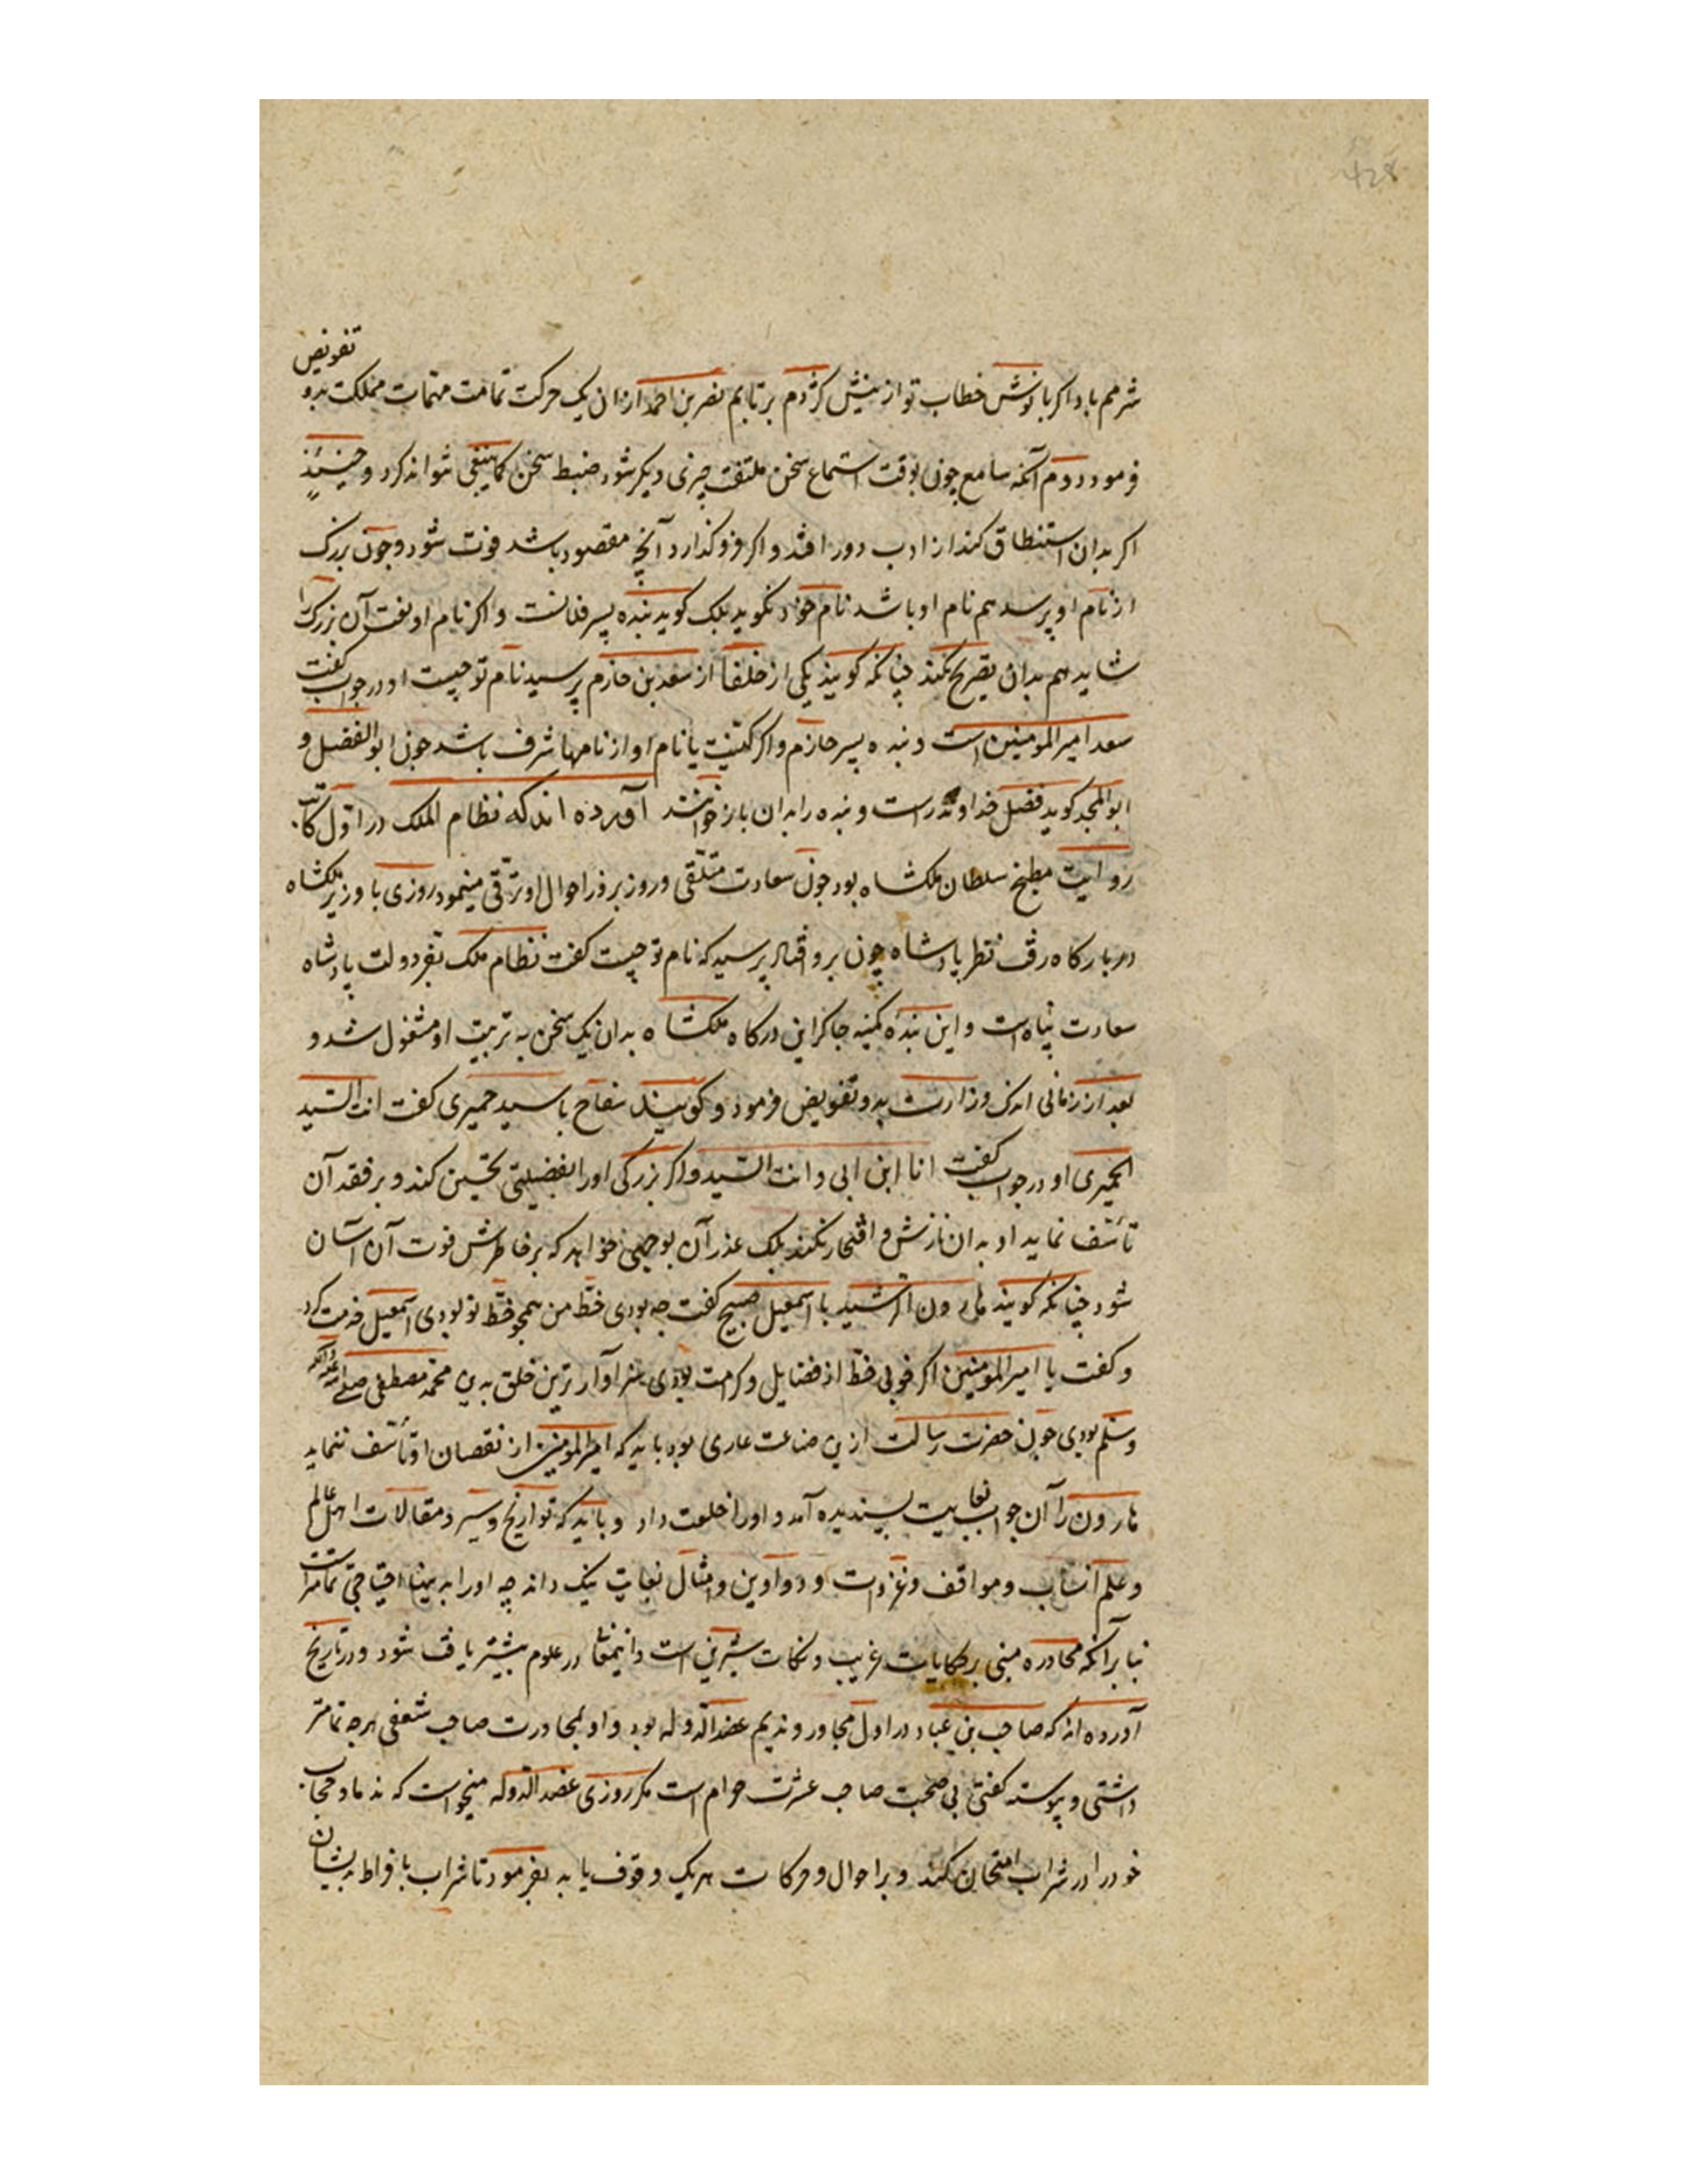 428
شرمم باد اکر با نوش خطاب تو از نیش کژدم برتابم نصر بن احمد از ان یک حرکت تمامت مهمات مملکت بدو تفویض
فرمود دوم آنکه سامع چون بوقت استماع سخن ملتفت چیزی دیکر شود ضبط سخن کما ینبغی نتواند کرد و حینئذٍ
اکر بدان استنطاق کند از ادب دور افتد و اکر فروکذارد آنچه مقصود باشد فوت شود و چون بزرک
از نام او پرسد هم نام او باشد نام خود نکوید بلک کوید بنده پسر فلانست و اکر نام او نعت آن بزرک را
شاید هم بدان تصریح نکند چنانکه کویند یکی از خلفا از سعد بن حازم پرسید نام تو چیست او در جواب کفت
سعد امیر المومنین است و بنده پسر حازم و اکر کنیت یا نام او از نامها شرف باشد چون ابو الفضل و
ابو المجد کوید فضل خداوند راست و بنده را بدان بازخوانند آورده اند که نظام الملک در اول کاتب
روایت مطبخ سلطان ملکشاه بود چون سعادت متلقی و روز بروز احوال او ترقی مینمود روزی با وزیر ملکشاه
در بارکاه رفت نظر پادشاه چون برو افتاد پرسید که نام تو چیست کفت نظام ملک بفر دولت پادشاه
سعادت پناه است و این بنده کمینه چاکر این درکاه ملکشاه بدان یک سخن به تربیت او مشغول شد و
بعد از زمانی اندک وزارت بدو تفویض فرمود و کویند سفاح با سید حمیری کفت انت السید
الحمیری او در جواب کفت انا ابن ابی و انت السید و اکر بزرکی او را بفضیلتی تحسین کند و بر فقد آن
تأسف نماید او بدان نازش و افتخار نکند بلک عذر آن بوجهی خواهد که بر خاطرش فوت آن آسان
شود چنانکه کویند هارون الرشید با اسمعیل صبیح کفت چه بودی خط من همچو خط تو بودی اسمعیل خدمت کرد
و کفت یا امیر المومنین اکر خوبی خط از فضایل و کرامت بودی سزاوار ترین خلق بدین محمد مصطفی صلی الله علیه و آله
وسلم بودی چون حضرت رسالت ازین صناعت عاری بود باید که امیر المومنین از نقصان او تأسف ننماید
هارون را آن جواب بغایت پسندیده آمد و او را خلعت داد و باید که تواریخ و سیر و مقالات اهل عالم
و علم انساب و مواقف و غزوات و دواوین و امثال بغایت نیک داند چه او را بدینها احتیاجی تمامتر است
بنا بر آنکه محاوره مبنی بر حکایات غریب و نکات شیرین است و اینمعنا در علوم بیشتر یافت شود و در تاریخ
آورده اند که صاحب بن عباد در اول مجاور و ندیم عضد الدوله بود و او بمجاورت صاحب شعفی هرچه تمامتر
داشتی و پیوسته کفتی بی صحبت صاحب عشرت حرام است مکر روزی عضد الدوله میخواست که ندما و حجاب
خود را در شراب امتحان کند و بر احوال و حرکات هریک وقوف یابد بفرمود تا شراب بافراط بدیشان